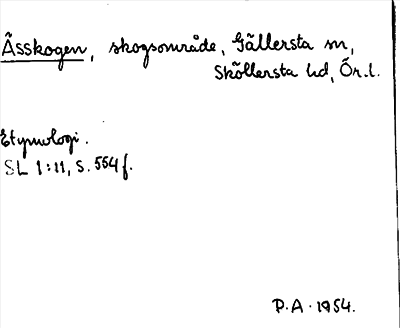 Åsskogen, skogsområde, Gällersta sn,
Sköllersta hd, Ör. l.
Etymologi.
SL 1:11, S. 554 f.
P.A. 1954.